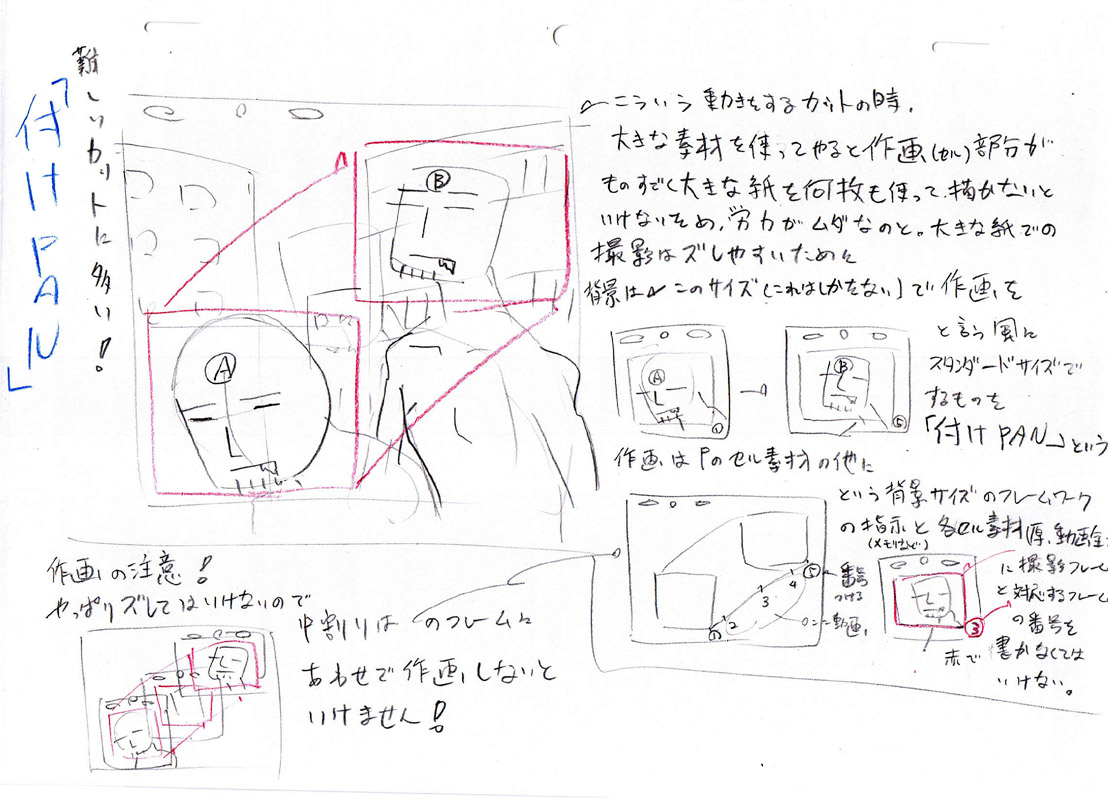 難しいカットに多い!
「付けPAN」
こういう動きをするカットの時、
大きな素材を使ってやると作画(セル)部分が
ものすごく大きな紙を何枚も使って、描かないと
いけないため、労力がムダなのと。大きな紙での
撮影はズレやすいために
背景は このサイズ(これはしかたない)で作画を
B
A
A
①
B
⑤
と言う風に
スタンダードサイズで
するものを
「付けPAN」という
作画はPのセル素材の他に
という背景サイズのフレームワーク
の指示と各セル素材(原、動画全
(メモリなど)
① 2 3 4 ⑤
番号
つける
動画
に撮影フレーム
と対応するフレーム
の番号を
赤で書かなくては
いけない。
③
作画の注意!
やっぱりズレてはいけないので
中割りは のフレームに
あわせて作画しないと
いけません!